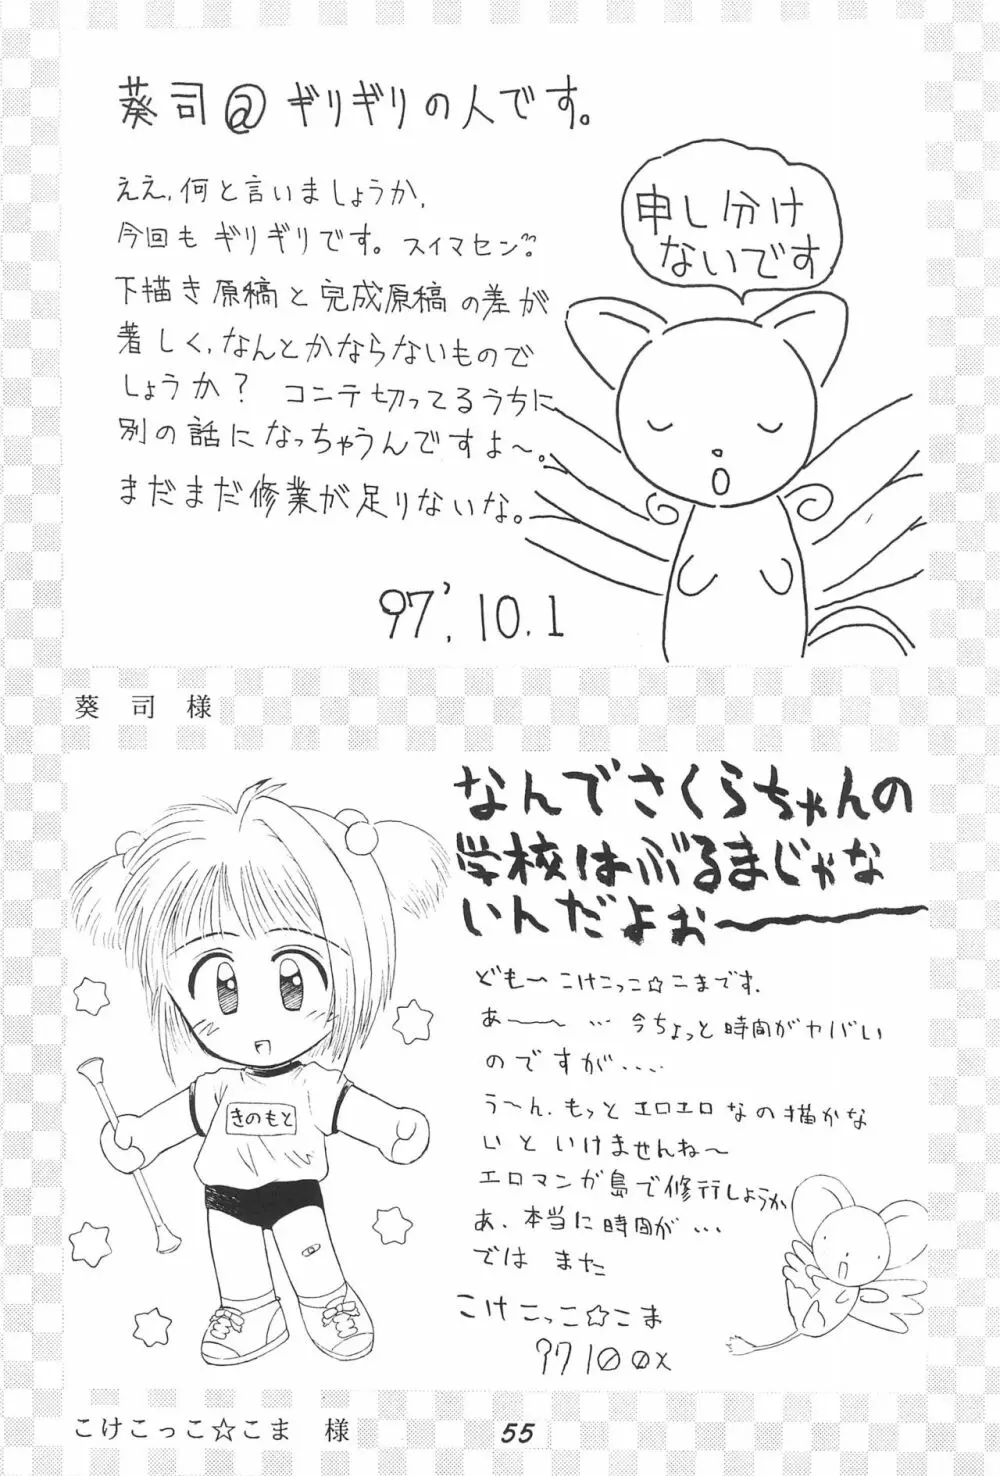 葵司@ギリギリの人です。
ええ,何と言いましょうか,
今回も ギリギリです。スイマセン
下描き原稿と完成原稿の差が
著しく,なんとかならないもので
しょうか? コンテ切ってるうちに
別の話になっちゃうんですよ〜。
まだまだ修業が足りないな。
97'.10.1
申し分け
ないです
葵 司 様
なんでさくらちゃんの
学校はぶるまじゃな
いんだよぉ〜
ども〜 こけこっこ☆こまです.
あ〜〜 … 今ちょっと時間がヤバい
のですが....
う〜ん.もっとエロエロなの描かな
いといけませんね〜
エロマンガ島で修行しょうか
あ、本当に時間が…
では また
こけこっこ☆こま
97 100x
きのもと
こけこっこ☆こま 様
55